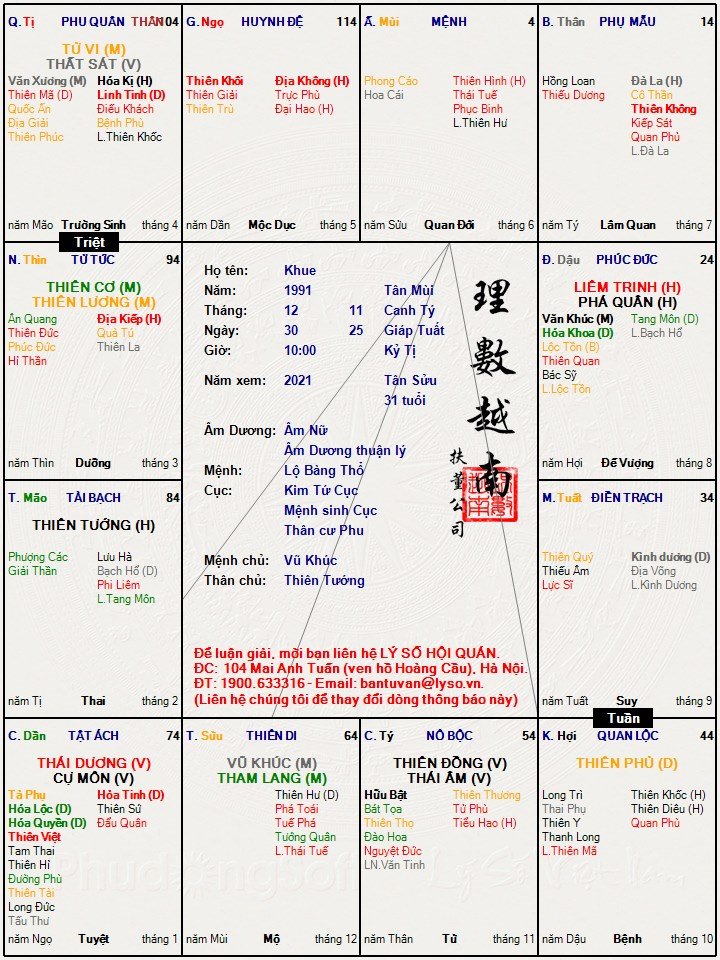 Q. Tị PHU QUÂN THÂN 104
TỬ VI (M)
THẤT SÁT (V)
Văn Xương (M) Hóa Kị (H)
Thiên Mã (D) Linh Tinh (D)
Quốc Ấn Điếu Khách
Địa Giải Bệnh Phù
Thiên Phúc L.Thiên Khốc
năm Mão Trường Sinh tháng 4
G. Ngọ HUYNH ĐỆ 114
Thiên Khôi Địa Không (H)
Thiên Giải Trực Phù
Thiên Trù Đại Hao (H)
năm Dần Mộc Dục tháng 5
Ấ. Mùi MỆNH 4
Phong Cáo Thiên Hình (H)
Hoa Cái Thái Tuế
Phục Binh
L.Thiên Hư
năm Sửu Quan Đới tháng 6
B. Thân PHỤ MẪU 14
Hồng Loan Đà La (H)
Thiếu Dương Cô Thần
Thiên Không
Kiếp Sát
Quan Phủ
L.Đà La
năm Tý Lâm Quan tháng 7
Triệt
N. Thìn TỬ TỨC 94
THIÊN CƠ (M)
THIÊN LƯƠNG (M)
Ân Quang Địa Kiếp (H)
Thiên Đức Quả Tú
Phúc Đức Thiên La
Hỉ Thần
năm Thìn Dưỡng tháng 3
Họ tên: Khue
Năm: 1991 Tân Mùi
Tháng: 12 11 Canh Tý
Ngày: 30 25 Giáp Tuất
Giờ: 10:00 Kỷ Tị
Năm xem: 2021 Tân Sửu
31 tuổi
Âm Dương: Âm Nữ
Âm Dương thuận lý
Mệnh: Lộ Bàng Thổ
Cục: Kim Tứ Cục
Mệnh sinh Cục
Thân cư Phu
Mệnh chủ: Vũ Khúc
Thân chủ: Thiên Tướng
理數越南
扶董公司
Để luận giải, mời bạn liên hệ LÝ SỐ HỘI QUÁN.
ĐC: 104 Mai Anh Tuấn (ven hồ Hoàng Cầu), Hà Nội.
ĐT: 1900.633316 - Email: bantuvan@lyso.vn.
(Liên hệ chúng tôi để thay đổi dòng thông báo này)
Đ. Dậu PHÚC ĐỨC 24
LIÊM TRINH (H)
PHÁ QUÂN (H)
Văn Khúc (M) Tang Môn (D)
Hóa Khoa (D) L.Bạch Hổ
Lộc Tồn (B)
Thiên Quan
Bác Sỹ
L.Lộc Tồn
năm Hợi Đế Vượng tháng 8
T. Mão TÀI BẠCH 84
THIÊN TƯỚNG (H)
Phượng Các Lưu Hà
Giải Thần Bạch Hổ (D)
Phi Liêm
L.Tang Môn
năm Tị Thai tháng 2
M. Tuất ĐIỀN TRẠCH 34
Thiên Quý Kình dương (D)
Thiếu Âm Địa Võng
Lực Sĩ L.Kình Dương
năm Tuất Suy tháng 9
Tuần
C. Dần TẬT ÁCH 74
THÁI DƯƠNG (V)
CỰ MÔN (V)
Tả Phụ Hỏa Tinh (D)
Hóa Lộc (D) Thiên Sứ
Hóa Quyền (D) Đẩu Quân
Thiên Việt
Tam Thai
Thiên Hỉ
Đường Phù
Thiên Tài
Long Đức
Tấu Thư
năm Ngọ Tuyệt tháng 1
T. Sửu THIÊN DI 64
VŨ KHÚC (M)
THAM LANG (M)
Thiên Hư (D)
Phá Toái
Tuế Phá
Tướng Quân
L.Thái Tuế
năm Mùi Mộ tháng 12
C. Tý NÔ BỘC 54
THIÊN ĐỒNG (V)
THÁI ÂM (V)
Hữu Bật Thiên Thương
Bát Tọa Tử Phù
Thiên Thọ Tiểu Hao (H)
Đào Hoa
Nguyệt Đức
LN.Văn Tinh
năm Thân Tử tháng 11
K. Hợi QUAN LỘC 44
THIÊN PHỦ (D)
Long Trì Thiên Khốc (H)
Thai Phụ Thiên Diêu (H)
Thiên Y Quan Phù
Thanh Long
L.Thiên Mã
năm Dậu Bệnh tháng 10